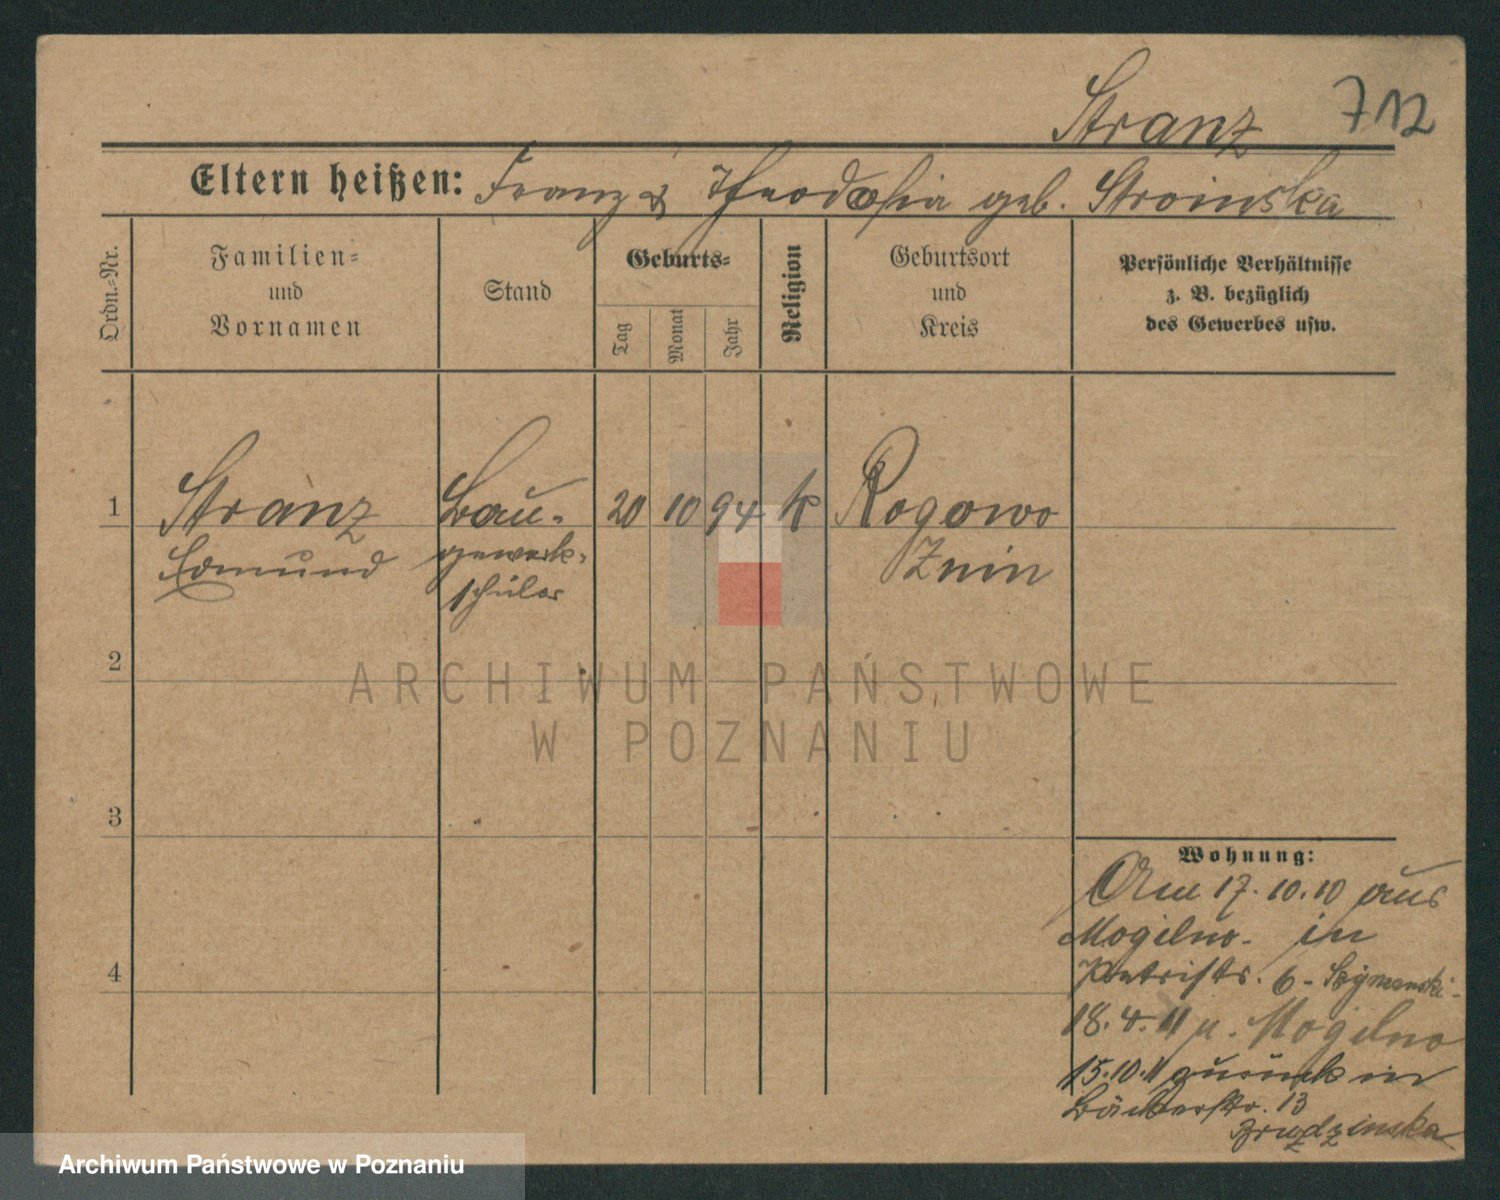 Stranz 712
Eltern heißen: Franz & Theodosia geb. Stroinska
Ordn.-Nr.
Familien-
und
Vornamen
Stand
Geburts-
Tag
Monat
Jahr
Religion
Geburtsort
und
Kreis
Persönliche Verhältnisse
z. B. bezüglich
des Gewerbes usw.
1 Stranz Bau- 20 10 94 k Rogowo
Edmund gewerk- Znin
schüler
2
ARCHIWUM PAŃSTWOWE
W POZNANIU
3
Wohnung:
Am 17.10.10 aus
Mogilno in
4
Petristr. 6 - Szymanski
18.4.11 n. Mogilno
15.10.11 zurück in
Bäckerstr. 13
Brudzinska
Archiwum Państwowe w Poznaniu